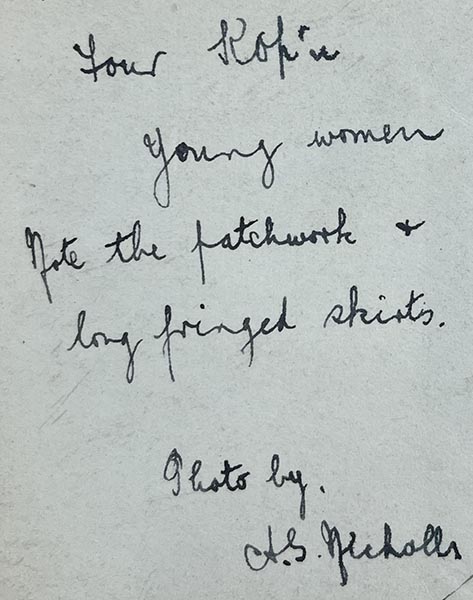 Four Kop'u
Young women
Note the patchwork &
long fringed skirts.
Photo by.
A.G. Nicholls